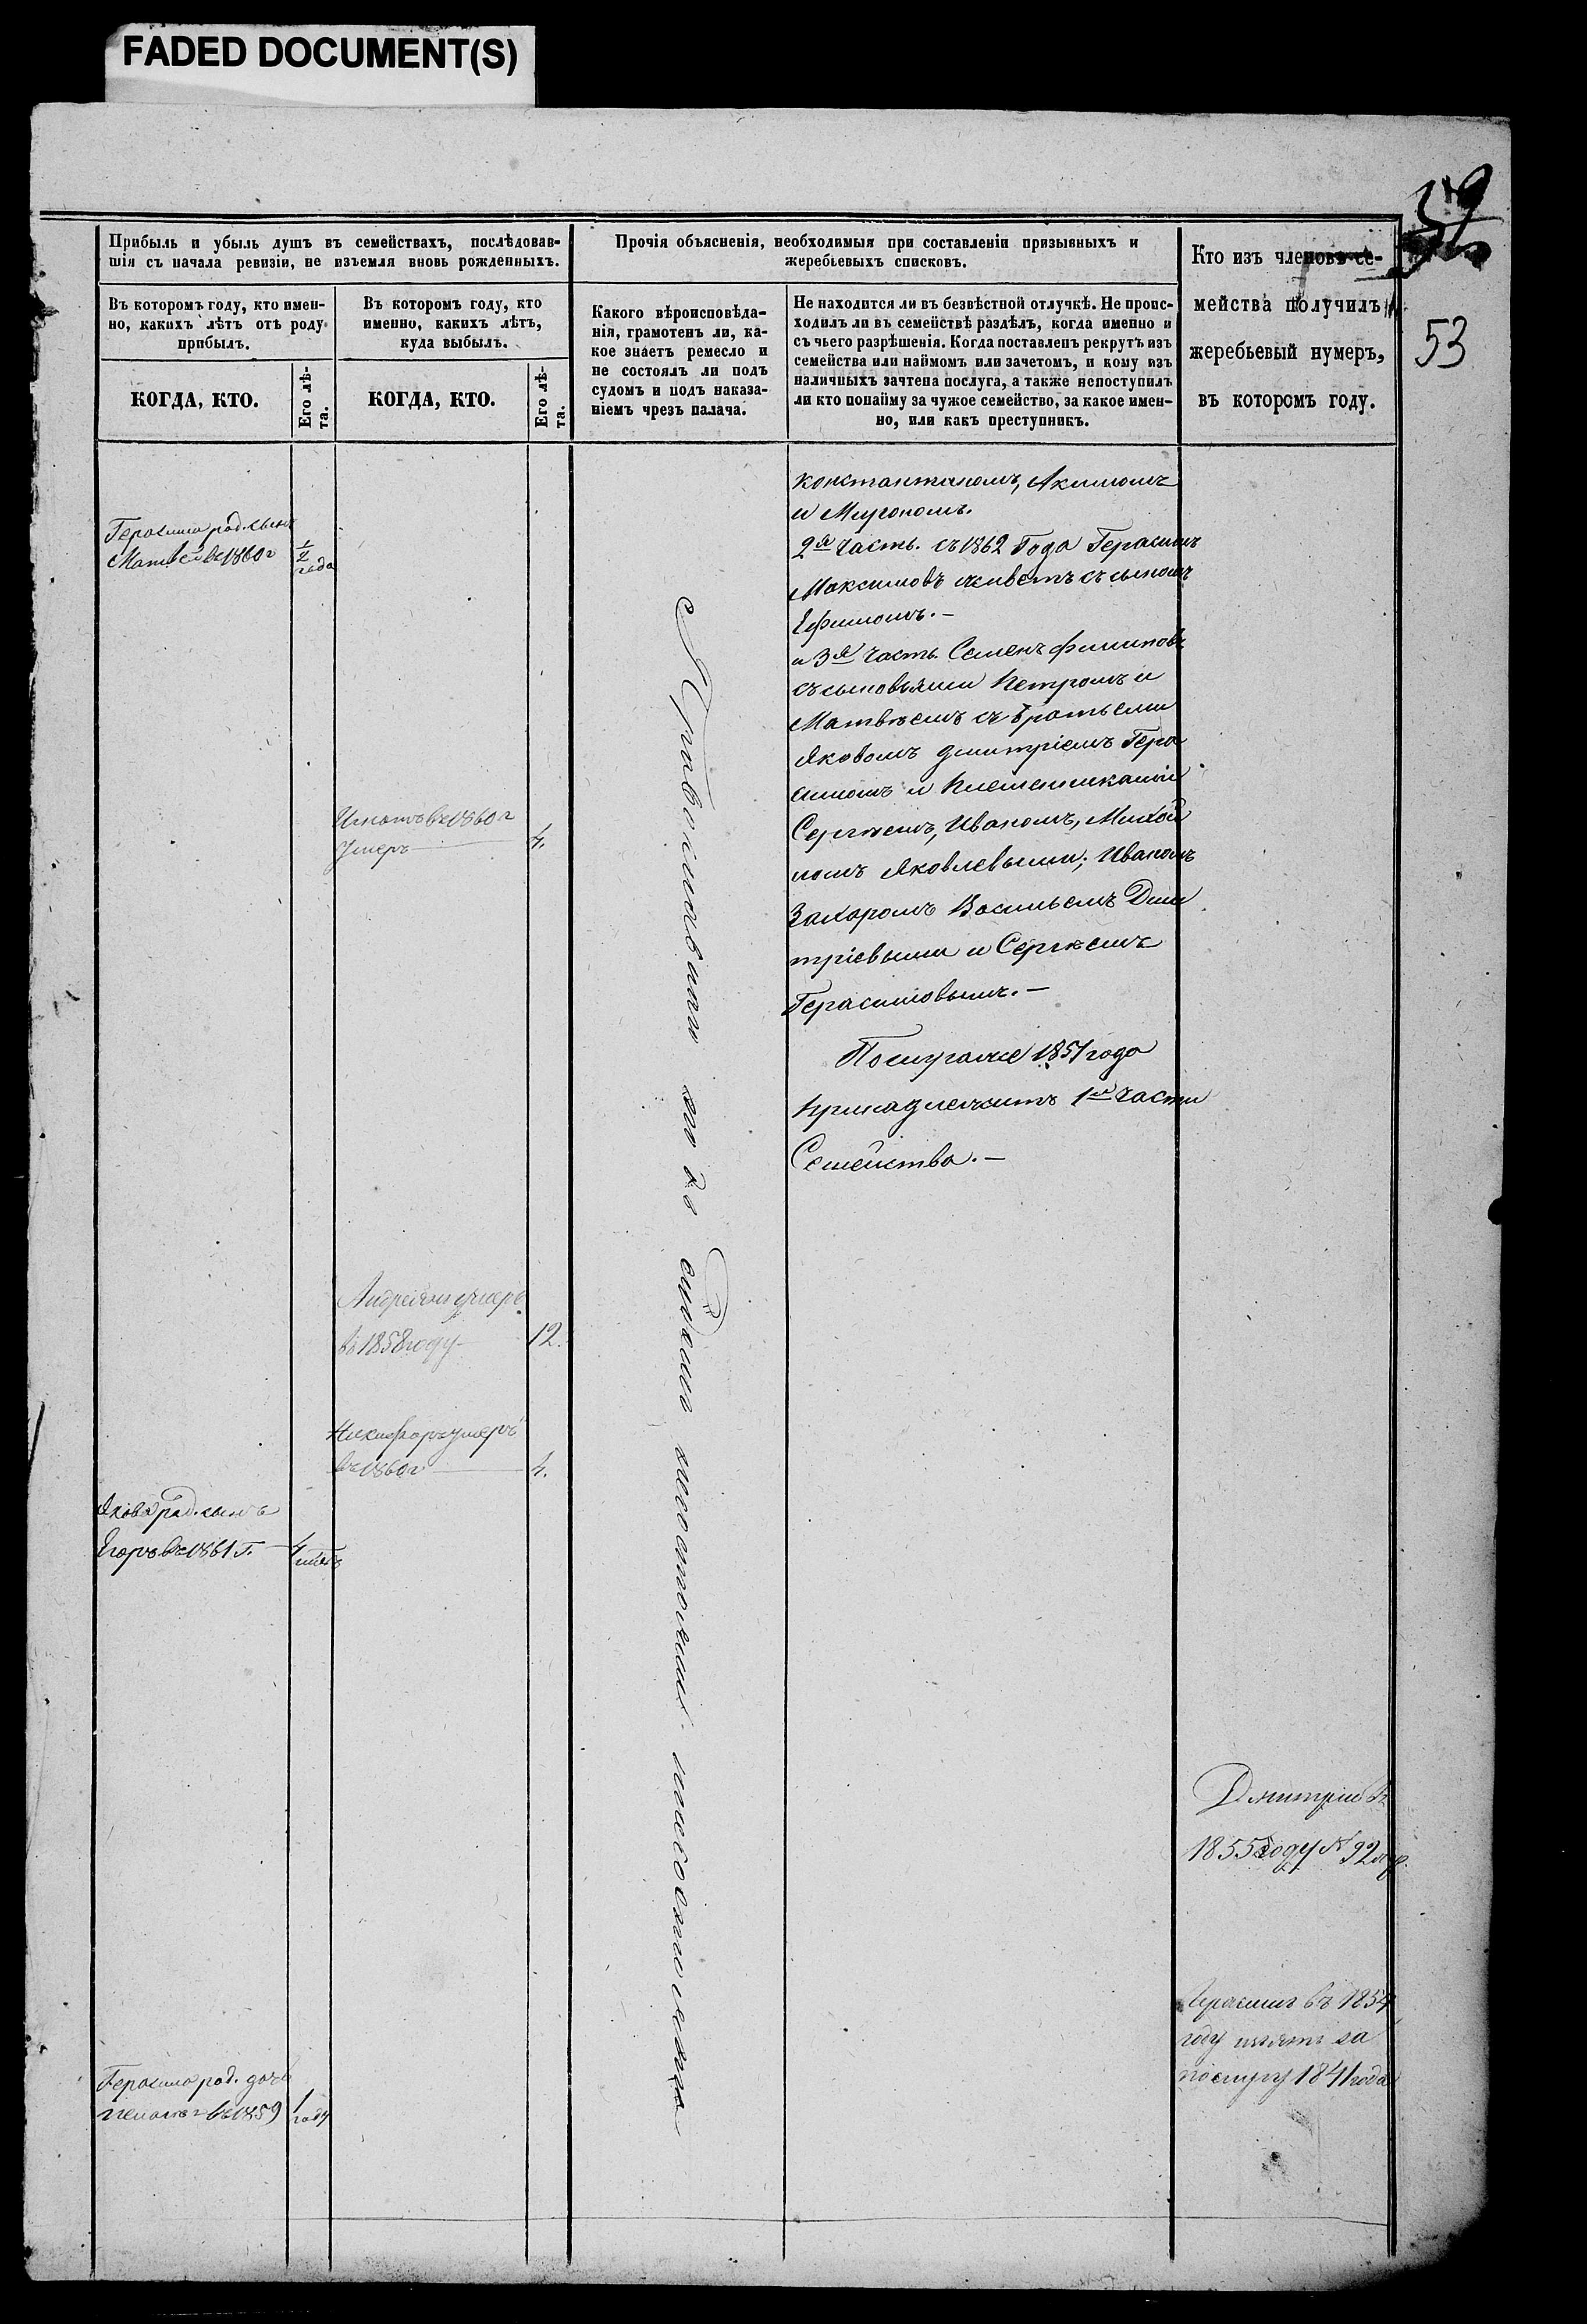 FADED DOCUMENT(S)
59
53
Прибыль и убыль душъ въ семействахъ, послѣдовав-
шія съ начала ревизіи, не изъемля вновь рожденныхъ.
Въ которомъ году, кто имен-
но, какихъ лѣтъ отъ роду
прибылъ.
КОГДА, КТО.
Его лѣ-
та.
Въ которомъ году, кто
именно, какихъ лѣтъ,
куда выбылъ.
КОГДА, КТО.
Его лѣ-
та.
Прочія объясненія, необходимыя при составленіи призывныхъ и
жеребьевыхъ списковъ.
Какого вѣроисповѣда-
нія, грамотенъ ли, ка-
кое знаетъ ремесло и
не состоялъ ли подъ
судомъ и подъ наказа-
ніемъ чрезъ палача.
Не находится ли въ безвѣстной отлучкѣ. Не проис-
ходилъ ли въ семействѣ раздѣлъ, когда именно и
съ чьего разрѣшенія. Когда поставленъ рекрутъ изъ
семейства или наймомъ или зачетомъ, и кому изъ
наличныхъ зачтена послуга, а также непоступилъ
ли кто понайму за чужое семейство, за какое имен-
но, или какъ преступникъ.
Кто изъ членовъ се-
мейства получилъ
жеребьевый нумеръ,
въ которомъ году.
Герасима род. сынъ
Матвей въ 1860 г
1/2
года
Игнатъ въ 1860 г
Умеръ
4.
Андреянъ умеръ
въ 1858 году
12.
Никифоръ умеръ
въ 1860 г
4.
Якова род. сынъ
Егоръ въ 1861 г.
4
Герасима род. дочь
въ 1859
1
году
Православнаго
константиномъ, Акимомъ
и Миропомъ.
2я часть. съ 1862 Года Герасимъ
Максимовъ живетъ съ сыномъ
Ефимомъ.—
и 3я часть. Семенъ Филиповъ
съ сыновьями Петромъ и
Матвѣемъ съ братьеми
Яковомъ Дмитріемъ Гера
симомъ и Племенниками
Сергѣемъ, Иваномъ, Михай
ломъ Яковлевыми; Иваномъ
Захаромъ Васильемъ Дми
тріевыми и Сергѣемъ
Герасимовымъ.—
Послугаже 1851 года
принадлежитъ 1й части
Семейства.—
Дмитріи въ
1855 году № 92
Герасимъ въ 1854
году изъятъ за
послугу 1841 года